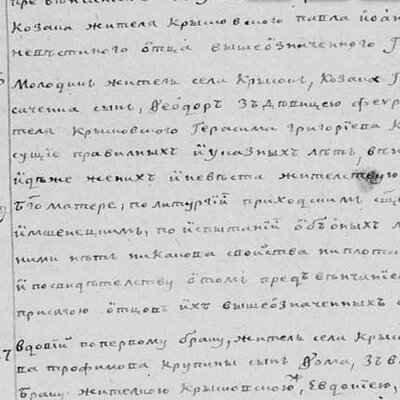 Козака жителя Крысовского павла Іоан
невѣстиного отца вышеозначенного
Молодикъ житель села Крысокъ, Козака
сачепка сынъ, Ѳеодоръ Зъ дѣвицею
теля Крысовского Герасима Григоріева К
сущіе правилныхъ и указныхъ лѣтъ, вѣн
идѣже женихъ и невѣста жителствую
Бгоматере, по литургіи приходскимъ свщ
Имшенецкимъ, по испытаніи обоѣныхъ
ними нѣтъ никакова свойства ни плотс
и по свидѣтелству о томъ предъ вѣнчаніе
присягою отцовъ ихъ вышеозначенныхъ
вдовій по первому браку, житель села Крыс
ва трофимова Крупины сынъ Ѳома, Зъ в
браку жителкою Крысовскою, Евдокіею,